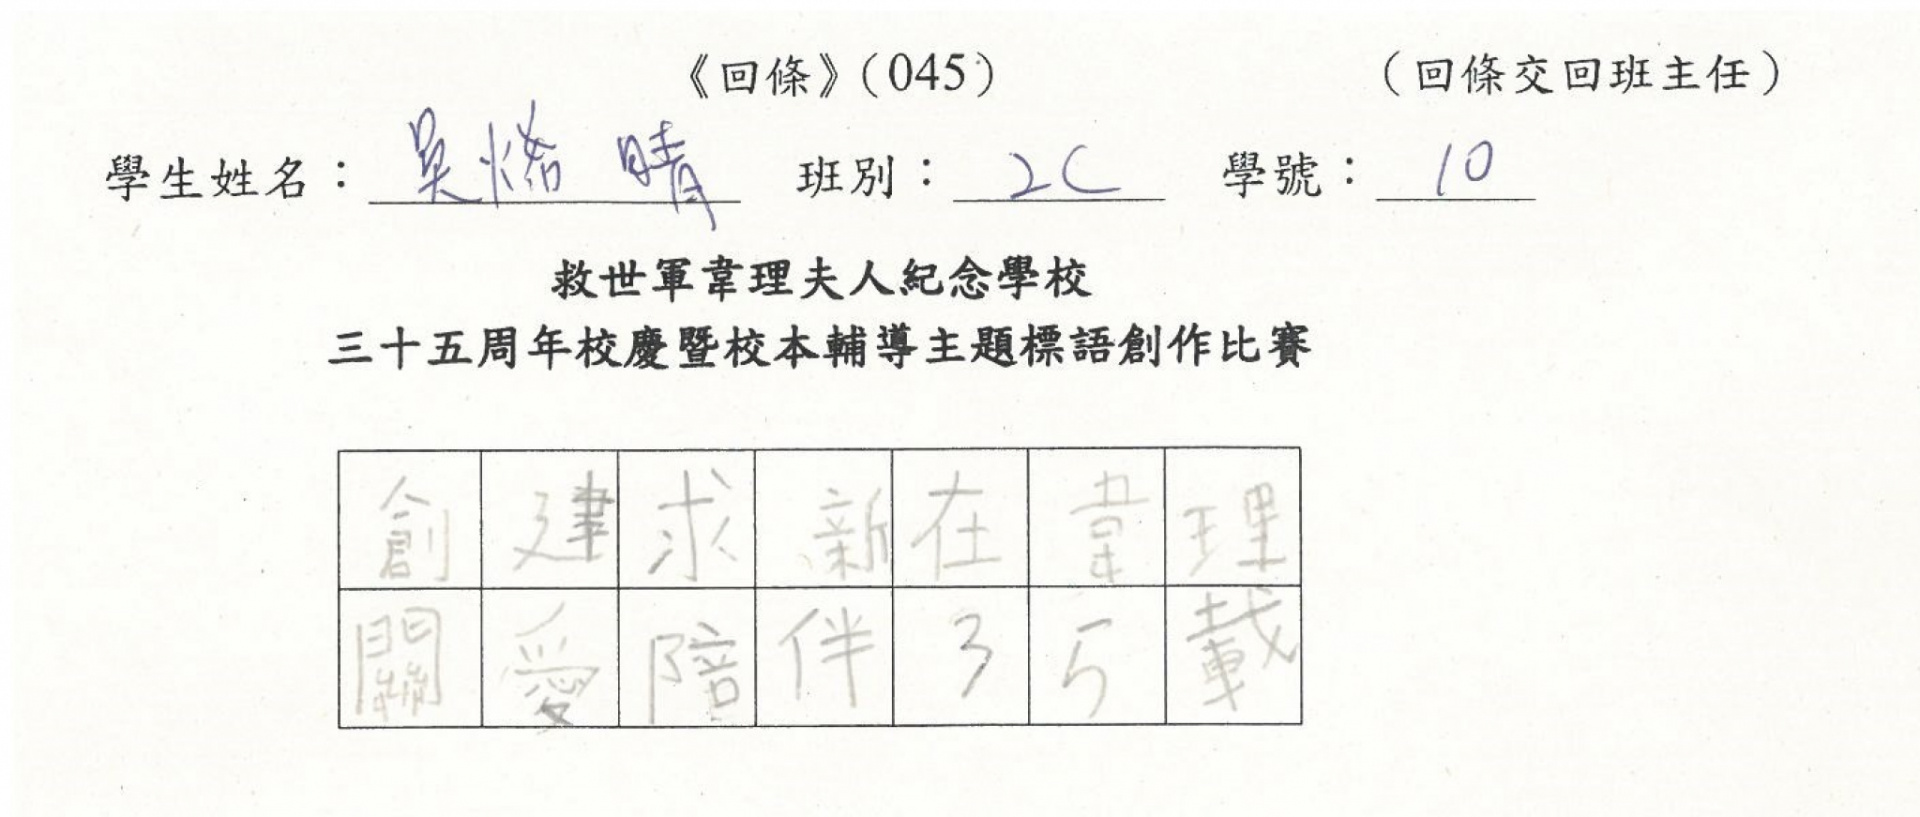 《回條》(045) （回條交回班主任）
學生姓名： 吳 晴 班別： 2C 學號： 10
救世軍韋理夫人紀念學校
三十五周年校慶暨校本輔導主題標語創作比賽
創建求新在韋理
關愛陪伴35載